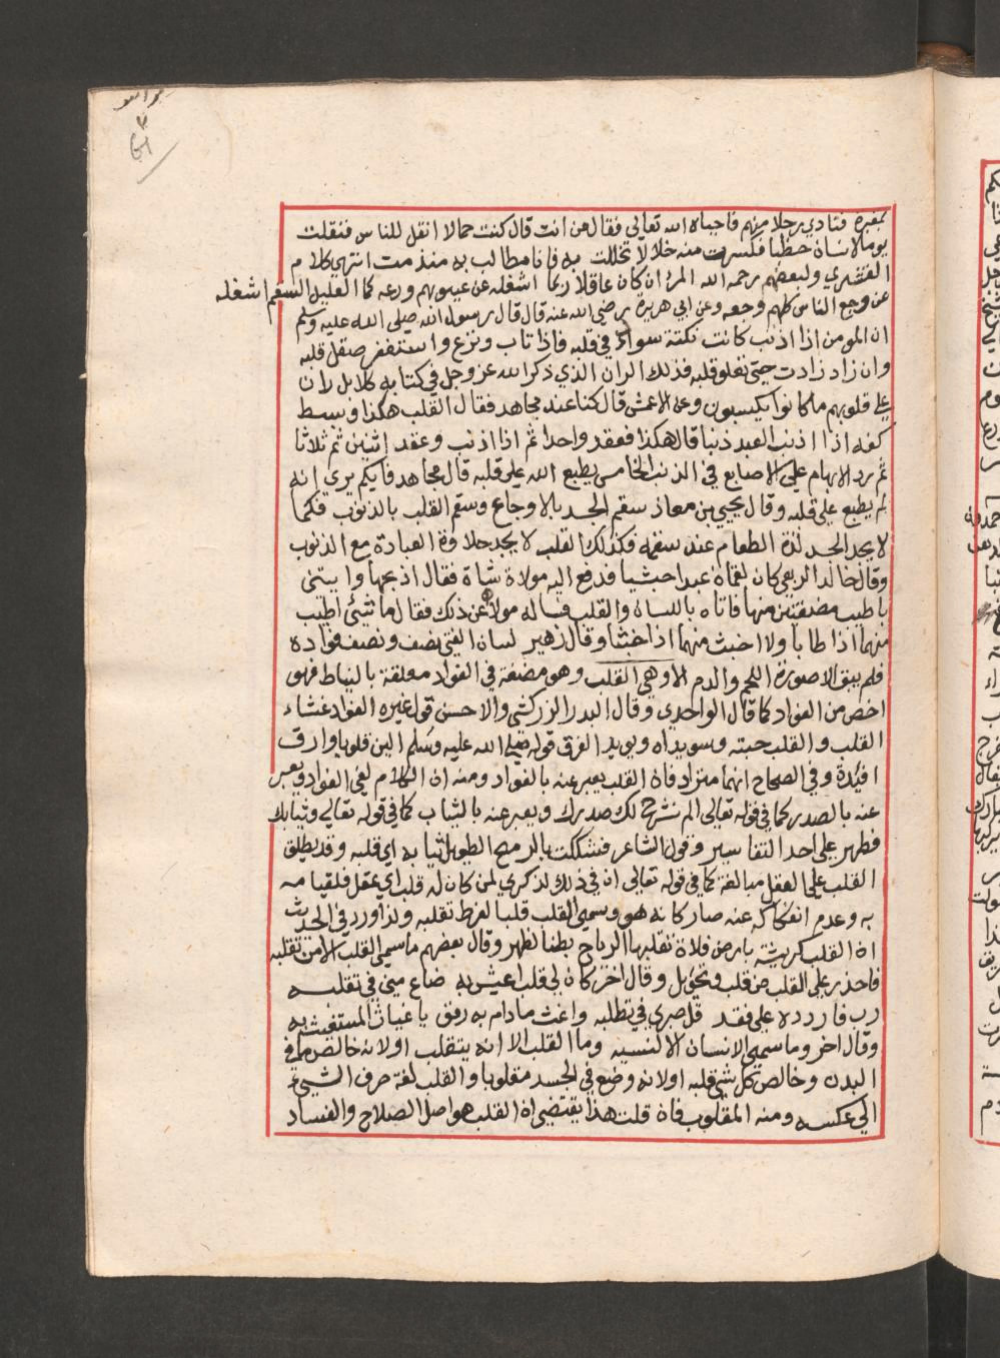 بمقبرة فنادي رجلا منهم فاحياه الله تعالي فقال من انت قال كنت حمالا انقل للناس فنقلت
يوما لانسان حطبا فكسرت منه خلالا تخللت به فانا مطالب به منذ مت انتهي كلام
القشيري ولبعضهم رحمه الله المرؤ ان كان عاقلا ربما اشغله عن عيوبهم ورعه كما العليل السقم اشغله
عن وجع الناس كلهم وجعه وعن ابي هريرة رضي الله عنه قال قال رسول الله صلي الله عليه وسلم
ان المومن اذا اذنب كانت نكتة سوادا في قلبه فاذا تاب ونزع واستغفر صقل قلبه
وان زاد زادت حتي تعلو قلبه فذلك الران الذي ذكر الله عز وجل في كتابه كلا بل ران
علي قلوبهم ما كانوا يكسبون وعن الاعمش قال كنا عند مجاهد فقال القلب هكذا وبسط
كفه اذا اذنب العبد ذنبا قال هكذا فعقد واحدا ثم اذا اذنب وعقد اثنين ثم ثلاثا
ثم رد الابهام علي الاصابع في الذنب الخامس يطبع الله علي قلبه قال مجاهد فايكم يري انه
لم يطبع علي قلبه وقال يحيي بن معاذ سقم الجسد بالاوجاع وسقم القلب بالذنوب فكما
لا يجد الجسد لذة الطعام عند سقمه فكذلك القلب لا يجد حلاوة العبادة مع الذنوب
وقال خالد الربعي كان لقمان عبدا حبشيا فدفع اليه مولاه شاة فقال اذبحها وايتني
باطيب مضغتين منها فاتاه باللسان والقلب فساله مولاه عن ذلك فقال ما شئ اطيب
منهما اذا طابا ولا اخبث منهما اذا خبثا وقال زهير لسان الفتي نصف ونصف فواده
فلم يبق الا صورة اللحم والدم الا وهي القلب وهو مضغة في الفواد معلقة بالنياط فهو
اخص من الفواد كما قال الواحدي وقال البدر الزركشي والاحسن قول غيره الفواد غشاء
القلب والقلب حبته وسويداه ويويد الفرق قوله صلي الله عليه وسلم الين قلوبا وارق
افئدة وفي الصحاح انهما مترادفان القلب يعبر عنه بالفواد ومنه ان الكلام لفي الفواد ويعبر
عنه بالصدر كما في قوله تعالي الم نشرح لك صدرك ويعبر عنه بالثياب كما في قوله تعالي وثيابك
فطهر علي احد التفاسير وقول الشاعر فشككت بالرمح الطويل ثيابه اي قلبه وقد يطلق
القلب علي العقل مبالغة كما في قوله تعالي ان في ذلك لذكري لمن كان له قلب اي عقل فلقيامه
به وعدم انفكاكه عنه صار كانه هو وسمي القلب قلبا لفرط تقلبه ولذا ورد في الحديث
ان القلب كريشة بارض فلاة تقلبها الرياح بطنا لظهر وقال بعضهم ما سمي القلب الا من تقلبه
فاحذر علي القلب من قلب وتحويل وقال اخر كان لي قلب اعيش به ضاع مني في تقلبه
رب فاردده علي فقد قل صبري في تطلبه واغث مادام به رمق يا غياث المستغيث به
وقال اخر وما سمي الانسان الا لنسيه وما القلب الا انه يتقلب اولانه خالص ما في
البدن وخالص كل شئ قلبه اولانه وضع في الجسد مقلوبا والقلب لغة صرف الشيء
الي عكسه ومنه المقلوب فان قلت هذا يقتضي ان القلب هو اصل الصلاح والفساد